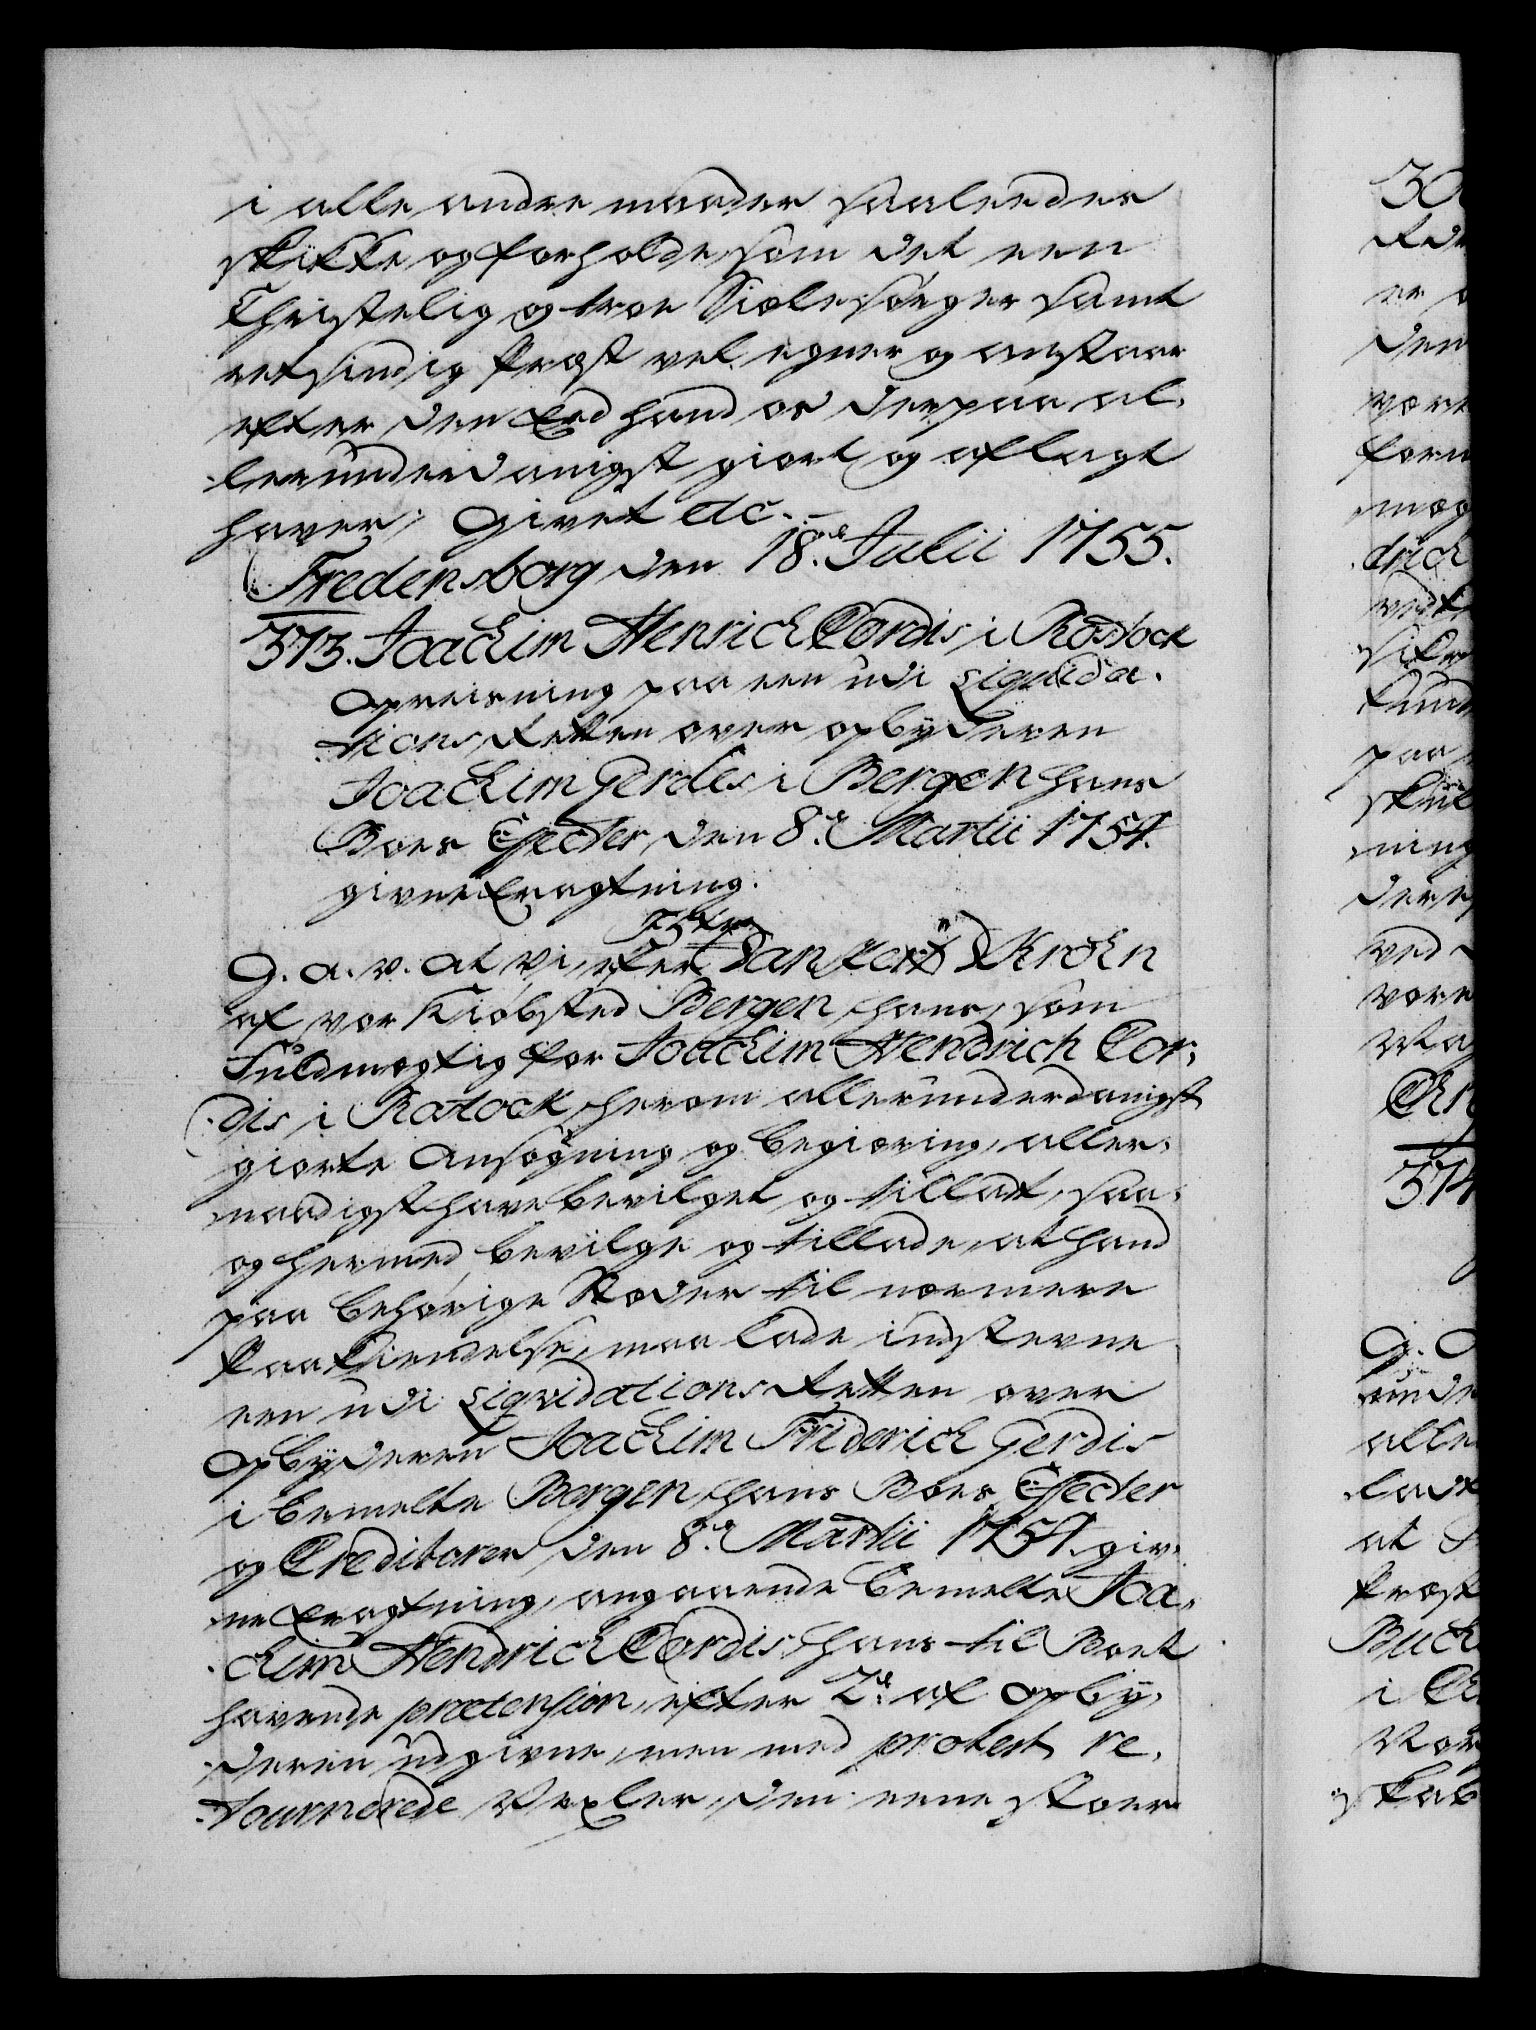 i alle andre maader saaledes
skikke og forholde, som det een
Christelig og troe Siælesørger samt
retsindig Præst vel egner og anstaar
efter den Eed hand os derpaa al-
lerunderdanigst giort og aflagt
haver, Givet etc.
Fredensborg den 18de Julii 1755.
373. Joachim Henrich Cordis i Rostock
Opreisning paa een udi Liqvida-
tions Retten over opbyderen
Joachim Gerdes i Bergen hans
Boes Effecter den 8de Martii 1754.
givne Eragtning.
G. a. v. at vi, efter Danckert D Krohn
af vor Kiøbsted Bergen, hans, som
Fuldmægtig for Joachim Hendrich Cor-
dis i Rostock, herom allerunderdanigst
giorte Ansøgning og begiæring, aller-
naadigst have bevilget og tilladt, saa-
og hermed bevilge og tillade, at hand
paa behørige Stæder til nærmere
Paakiendelse, maa lade indstevne
een udi Liqvidations Retten over
Opbyderen Joachim Friderich Gerdis
i bemelte Bergen, hans Boes Effecter
og Creditorer, den 8de Martii 1754. giv-
ne Eragtning, angaaende bemelte Joa-
chim Hendrich Cordis, hans til Boet
havende prætension, efter 2de af Opby-
deren udgivne, men med protest re-
tournerede Vexler, den eene stoer